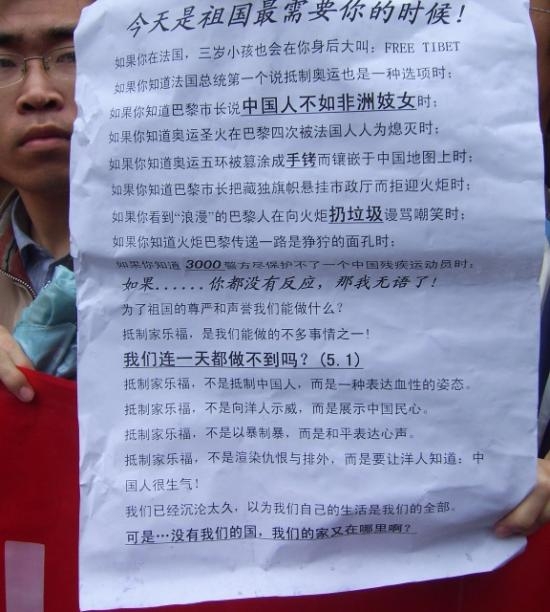 今天是祖国最需要你的时候！
如果你在法国，三岁小孩也会在你身后大叫：FREE TIBET
如果你知道法国总统第一个说抵制奥运也是一种选项时；
如果你知道巴黎市长说中国人不如非洲妓女时；
如果你知道奥运圣火在巴黎四次被法国人人为熄灭时；
如果你知道奥运五环被篡涂成手铐而镶嵌于中国地图上时；
如果你知道巴黎市长把藏独旗帜悬挂市政厅而拒迎火炬时；
如果你看到“浪漫”的巴黎人在向火炬扔垃圾谩骂嘲笑时；
如果你知道火炬巴黎传递一路是狰狞的面孔时；
如果你知道 3000 警方尽保护不了一个中国残疾运动员时；
如果......你都没有反应，那我无语了！
为了祖国的尊严和声誉我们能做什么？
抵制家乐福，是我们能做的不多事情之一！
我们连一天都做不到吗？(5.1)
抵制家乐福，不是抵制中国人，而是一种表达血性的姿态。
抵制家乐福，不是向洋人示威，而是展示中国民心。
抵制家乐福，不是以暴制暴，而是和平表达心声。
抵制家乐福，不是渲染仇恨与排外，而是要让洋人知道：中
国人很生气！
我们已经沉沦太久，以为我们自己的生活是我们的全部。
可是…没有我们的国，我们的家又在哪里啊？